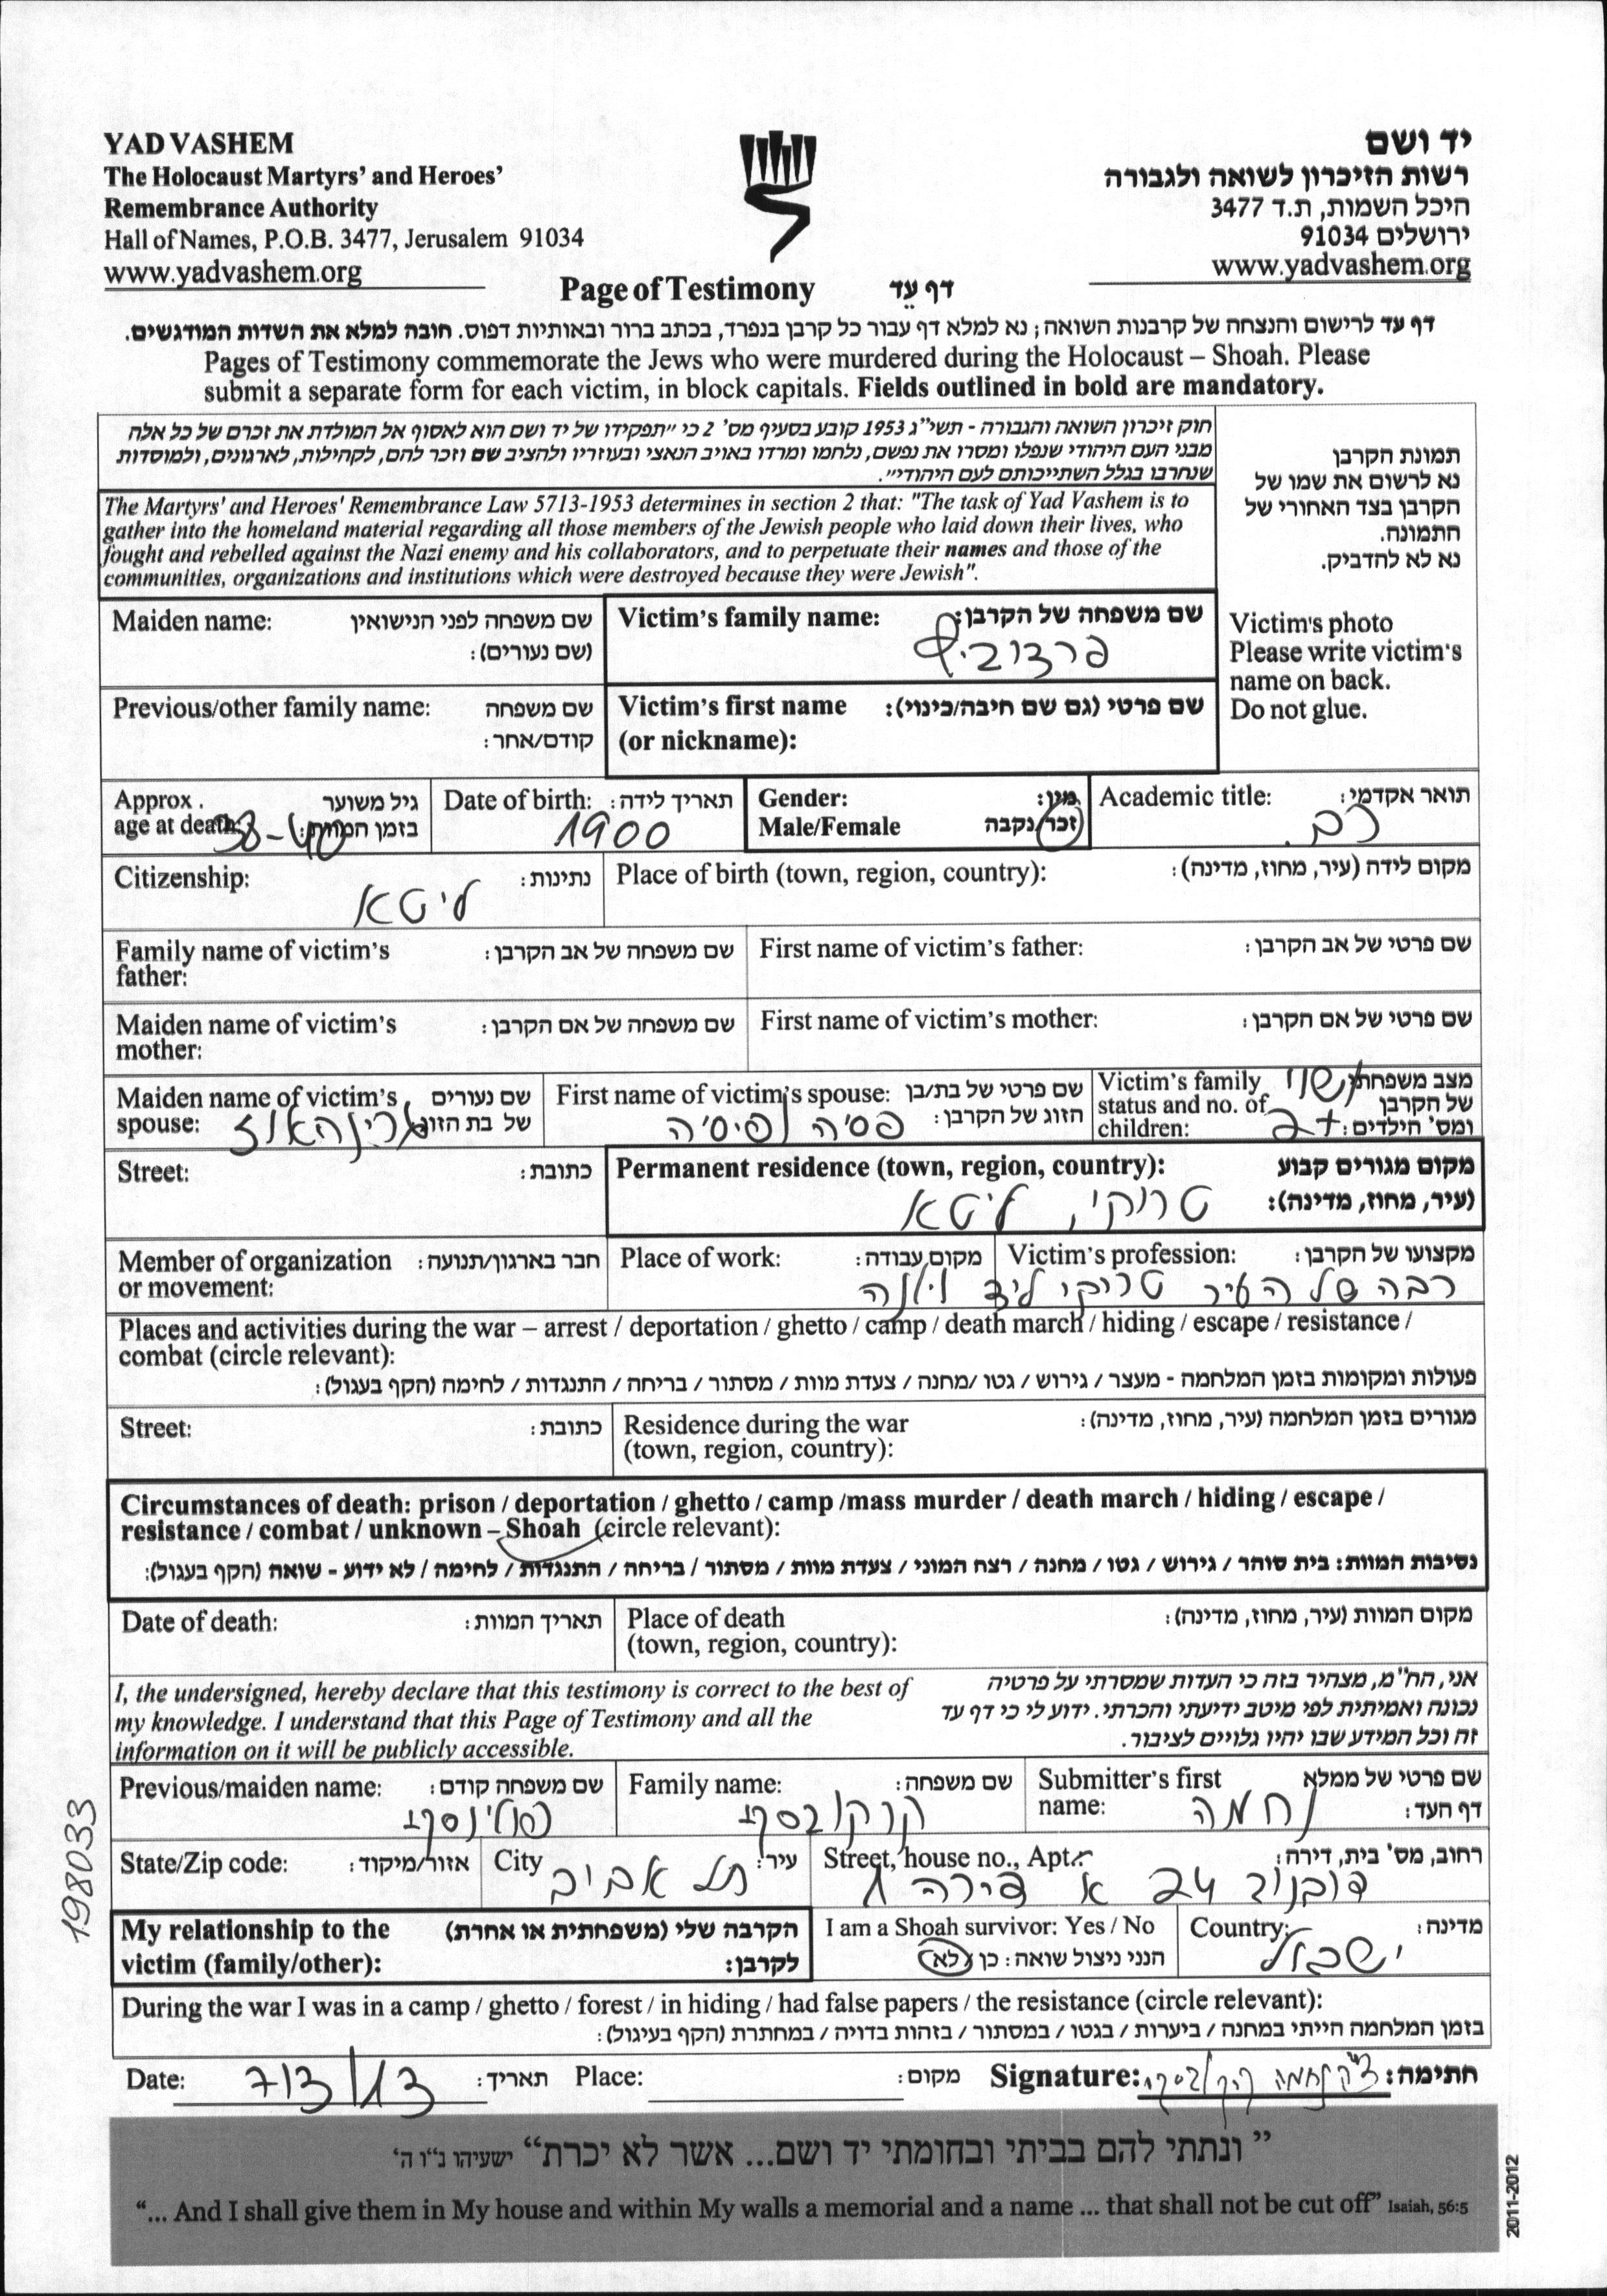 YAD VASHEM
The Holocaust Martyrs' and Heroes'
Remembrance Authority
Hall of Names, P.O.B. 3477, Jerusalem 91034
www.yadvashem.org
יד ושם
רשות הזיכרון לשואה ולגבורה
היכל השמות, ת.ד 3477
ירושלים 91034
www.yadvashem.org
Page of Testimony דף עֵד
דף עד לרישום והנצחה של קרבנות השואה; נא למלא דף עבור כל קרבן בנפרד, בכתב ברור ובאותיות דפוס. חובה למלא את השדות המודגשים.
Pages of Testimony commemorate the Jews who were murdered during the Holocaust – Shoah. Please
submit a separate form for each victim, in block capitals. Fields outlined in bold are mandatory.
חוק זיכרון השואה והגבורה - תשי"ג 1953 קובע בסעיף מס' 2 כי "תפקידו של יד ושם הוא לאסוף אל המולדת את זכרם של כל אלה
מבני העם היהודי שנפלו ומסרו את נפשם, נלחמו ומרדו באויב הנאצי ובעוזריו ולהציב שם וזכר להם, לקהילות, לארגונים, ולמוסדות
שנחרבו בגלל השתייכותם לעם היהודי".
The Martyrs' and Heroes' Remembrance Law 5713-1953 determines in section 2 that: "The task of Yad Vashem is to
gather into the homeland material regarding all those members of the Jewish people who laid down their lives, who
fought and rebelled against the Nazi enemy and his collaborators, and to perpetuate their names and those of the
communities, organizations and institutions which were destroyed because they were Jewish".
תמונת הקרבן
נא לרשום את שמו של
הקרבן בצד האחורי של
התמונה.
נא לא להדביק.
Victim's photo
Please write victim's
name on back.
Do not glue.
Maiden name: שם משפחה לפני הנישואין
(שם נעורים):
Victim's family name: שם משפחה של הקרבן:
Previous/other family name: שם משפחה
קודם/אחר:
Victim's first name שם פרטי (גם שם חיבה/כינוי):
(or nickname):
Approx. גיל משוער
age at death: בזמן המוות: 38-40
Date of birth: תאריך לידה:
1900
Gender: מין:
Male/Female זכר/נקבה
Academic title: תואר אקדמי:
רב
Citizenship: נתינות:
ליטא
Place of birth (town, region, country): מקום לידה (עיר, מחוז, מדינה):
Family name of victim's שם משפחה של אב הקרבן:
father:
First name of victim's father: שם פרטי של אב הקרבן:
Maiden name of victim's שם משפחה של אם הקרבן:
mother:
First name of victim's mother: שם פרטי של אם הקרבן:
Maiden name of victim's שם נעורים
spouse: של בת הזוג: גרינהאוז
First name of victim's spouse: שם פרטי של בת/בן
הזוג של הקרבן: פסיה
Victim's family מצב משפחתי נשוי
status and no. of של הקרבן
children: ומס' הילדים: 2+
Street: כתובת:
Permanent residence (town, region, country): מקום מגורים קבוע
(עיר, מחוז, מדינה): טרוקי, ליטא
Member of organization חבר בארגון/תנועה:
or movement:
Place of work: מקום עבודה:
Victim's profession: מקצועו של הקרבן:
רבה של העיר טרוקי ליד וילנה
Places and activities during the war – arrest / deportation / ghetto / camp / death march / hiding / escape / resistance /
combat (circle relevant):
פעולות ומקומות בזמן המלחמה - מעצר / גירוש / גטו /מחנה / צעדת מוות / מסתור / בריחה / התנגדות / לחימה (הקף בעגול):
Street: כתובת:
Residence during the war מגורים בזמן המלחמה (עיר, מחוז, מדינה):
(town, region, country):
Circumstances of death: prison / deportation / ghetto / camp /mass murder / death march / hiding / escape /
resistance / combat / unknown – Shoah (circle relevant):
נסיבות המוות: בית סוהר / גירוש / גטו / מחנה / רצח המוני / צעדת מוות / מסתור / בריחה / התנגדות / לחימה / לא ידוע - שואה (הקף בעגול):
Date of death: תאריך המוות:
Place of death מקום המוות (עיר, מחוז, מדינה):
(town, region, country):
I, the undersigned, hereby declare that this testimony is correct to the best of
my knowledge. I understand that this Page of Testimony and all the
information on it will be publicly accessible.
אני, הח"מ, מצהיר בזה כי העדות שמסרתי על פרטיה
נכונה ואמיתית לפי מיטב ידיעתי והכרתי. ידוע לי כי דף עד
זה וכל המידע שבו יהיו גלויים לציבור.
Previous/maiden name: שם משפחה קודם:
Family name: שם משפחה:
Submitter's first שם פרטי של ממלא
name: דף העד: נחמה
State/Zip code: אזור/מיקוד:
City עיר:
תל אביב
Street, house no., Apt.: רחוב, מס' בית, דירה:
דובנוב 24 א דירה
My relationship to the הקרבה שלי (משפחתית או אחרת)
victim (family/other): לקרבן:
I am a Shoah survivor: Yes / No
הנני ניצול שואה: כן / לא
Country: מדינה:
ישראל
During the war I was in a camp / ghetto / forest / in hiding / had false papers / the resistance (circle relevant):
בזמן המלחמה הייתי במחנה / ביערות / בגטו / במסתור / בזהות בדויה / במחתרת (הקף בעיגול):
Date: 7/3/13 תאריך: Place: מקום: Signature: חתימה:
"ונתתי להם בביתי ובחומתי יד ושם... אשר לא יכרת" ישעיהו נ"ו ה'
"... And I shall give them in My house and within My walls a memorial and a name ... that shall not be cut off" Isaiah, 56:5
198033
2011-2012